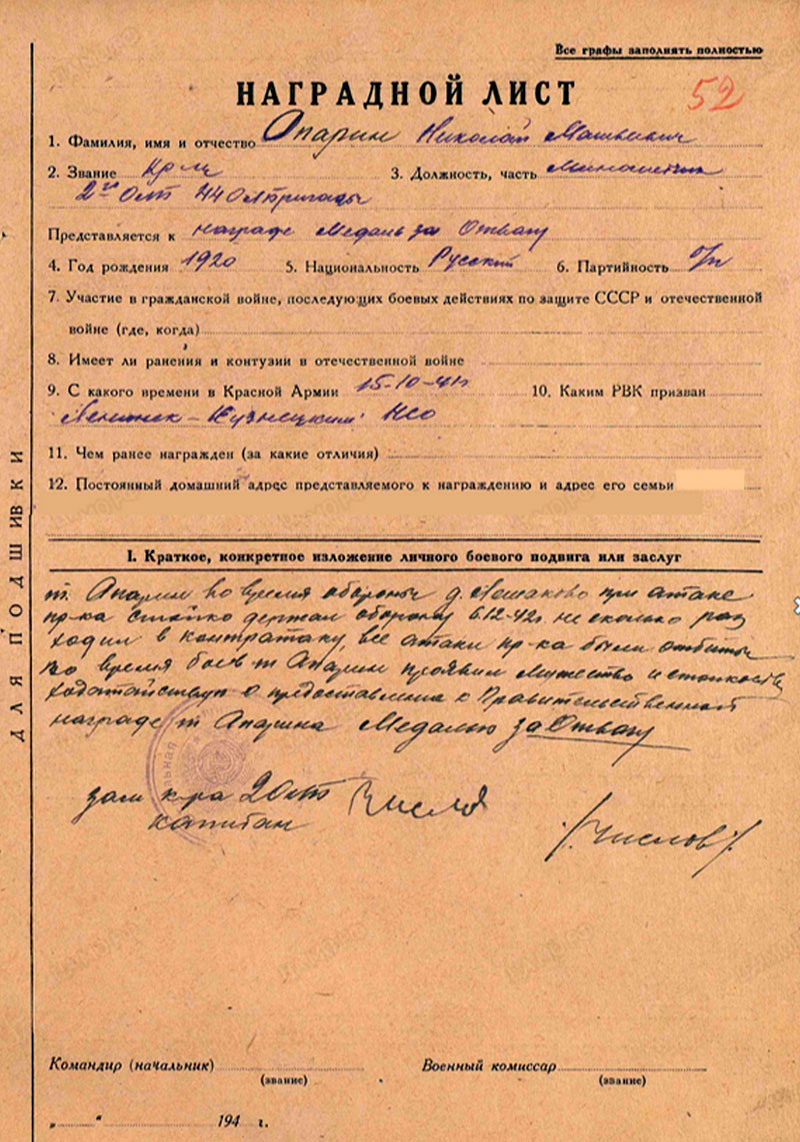 Все графы заполнять полностью
НАГРАДНОЙ ЛИСТ
52
1. Фамилия, имя и отчество Апарин Николай
2. Звание Кр-ц 3. Должность, часть Минометчик
2го 44
Представляется к награде Медаль за Отвагу
4. Год рождения 1920 5. Национальность Русский 6. Партийность б/п
7. Участие в гражданской войне, последующих боевых действиях по защите СССР и отечественной
войне (где, когда)
8. Имеет ли ранения и контузии в отечественной войне
9. С какого времени в Красной Армии 15-10-41г 10. Каким РВК призван
Ленинск-Кузнецким НСО
11. Чем ранее награжден (за какие отличия)
12. Постоянный домашний адрес представляемого к награждению и адрес его семьи
I. Краткое, конкретное изложение личного боевого подвига или заслуг
т. Апарин во время обороны д. при атаке
пр-ка стойко держал оборону 6.12-42г. не сколько раз
ходил в контратаку, все атаки пр-ка были отбиты
Во время боев т Апарин проявил мужество и стойкость
ходатайствую о предоставлении к Правительственной
награде т Апарина Медалью за Отвагу
зам к-ра 2
капитан
/Числов/
Командир (начальник)
(звание)
Военный комиссар
(звание)
„ “ 194 г.
ДЛЯ ПОДШИВКИ